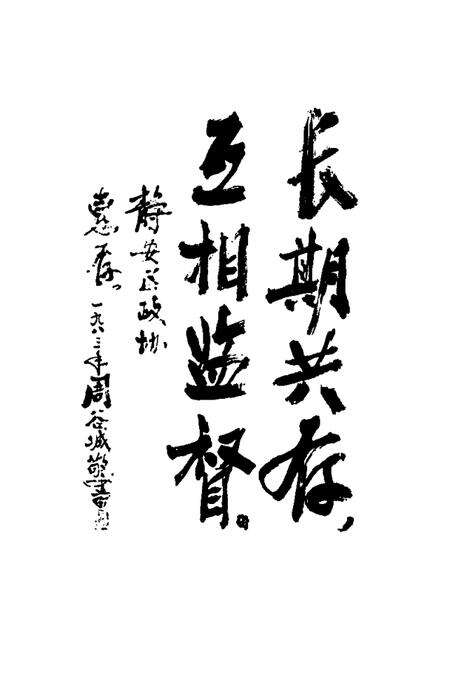 长期共存，
互相监督。
静安区政协
惠存。一九八三年周谷城敬书